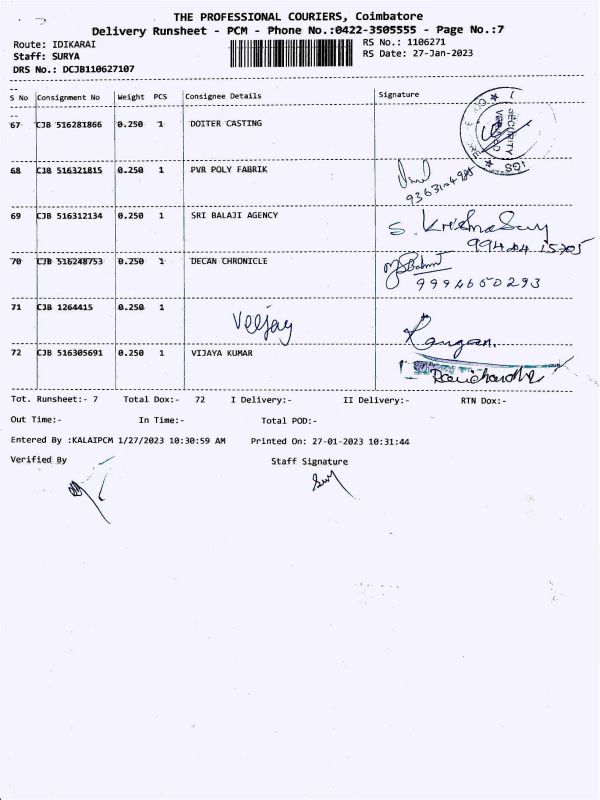 THE PROFESSIONAL COURIERS, Coimbatore
Delivery Runsheet - PCM - Phone No.:0422-3505555 - Page No.:7
Route: IDIKARAI
RS No.: 1106271
Staff: SURYA
RS Date: 27-Jan-2023
DRS No.: DCJB110627107
S No Consignment No Weight PCS Consignee Details Signature
67 CJB 516281866 0.250 1 DOITER CASTING
SECURITY
68 CJB 516321815 0.250 1 PVR POLY FABRIK
69 CJB 516312134 0.250 1 SRI BALAJI AGENCY
70 CJB 516248753 0.250 1 DECAN CHRONICLE
9994650293
71 CJB 1264415 0.250 1
Veejay
Rangan.
72 CJB 516305691 0.250 1 VIJAYA KUMAR
Tot. Runsheet:- 7 Total Dox:- 72 I Delivery:- II Delivery:- RTN Dox:-
Out Time:- In Time:- Total POD:-
Entered By :KALAIPCM 1/27/2023 10:30:59 AM Printed On: 27-01-2023 10:31:44
Verified By Staff Signature